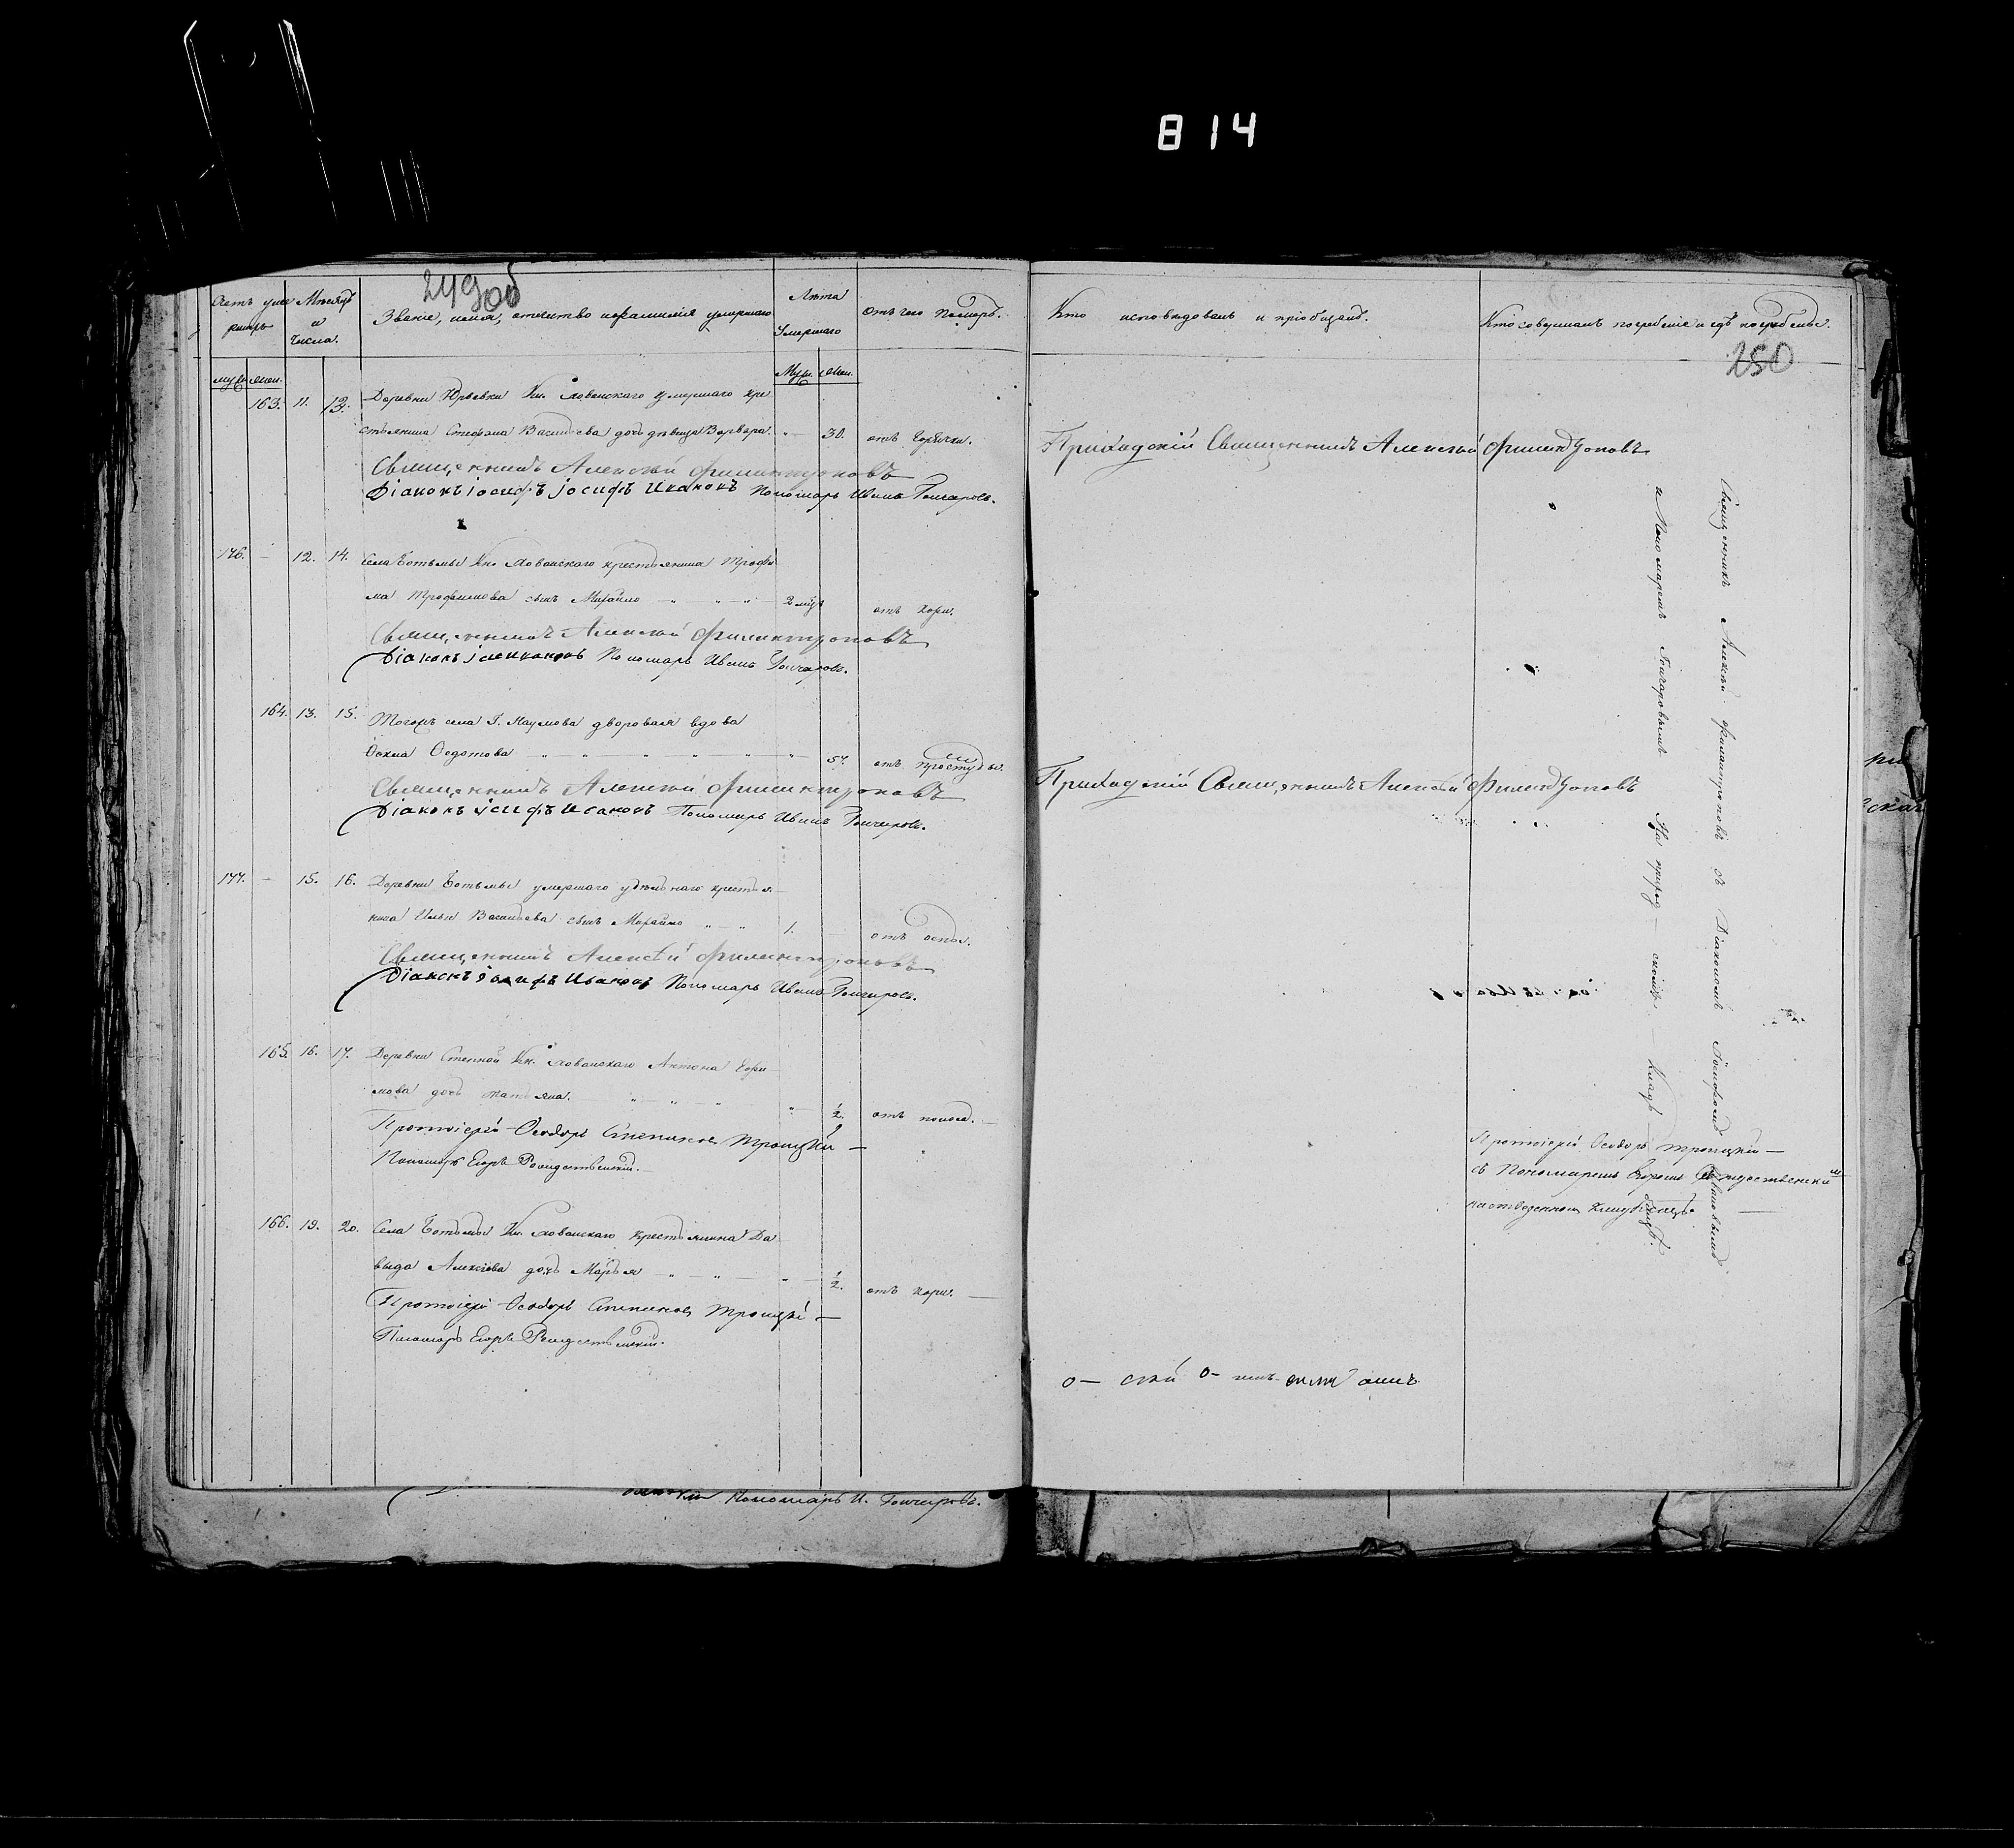 814
249 об
250
Счетъ умершихъ
Мѣсяцъ и числа.
Званіе, имя, отчество и фамилія умершаго
Лѣта умершаго
Отъ чего померъ.
Кто исповѣдовалъ и пріобщалъ.
Кто совершалъ погребеніе и гдѣ погребены.
муж. жен.
Муж. жен.
163. 11. 13. Деревни Юрьевки Кн. Хованскаго умершаго кре
стьянина Стефана Васильева дочь дѣвица Варвара. 30. отъ горячки.
Священникъ Алексѣй Филантроповъ
Діаконъ Іосифъ Ивановъ Пономарь Иванъ Гончаровъ.
Приходскій Священникъ Алексѣй Филантроповъ
176. 12. 14. Села Ботьмы Кн. Хованскаго крестьянина Трофи
ма Трофимова сынъ Михайло 2 отъ кори.
Священникъ Алексѣй Филантроповъ
Діаконъ Ивановъ Пономарь Иванъ Гончаровъ.
164. 13. 15. Тогожъ села Г. Наумова дворовая вдова
Федотова 57. отъ простуды.
Священникъ Алексѣй Филантроповъ
Діаконъ Іосифъ Ивановъ Пономарь Иванъ Гончаровъ.
Приходскій Священникъ Алексѣй Филантроповъ
177. 15. 16. Деревни Ботьмы умершаго удѣльнаго крестья
нина Ильи Васильева сынъ Михайло 1. отъ оспы.
Священникъ Алексѣй Филантроповъ
Діаконъ Іосифъ Ивановъ Пономарь Иванъ Гончаровъ.
165. 16. 17. Деревни Степной Кн. Хованскаго Антона Ефи
мова дочь Татьяна. 1/2. отъ поноса.
Протоіерей Ѳеодоръ Степановъ Троицкій
Пономарь Егоръ Рождественскій.
166. 19. 20. Села Ботьмы Кн. Хованскаго крестьянина Да
выда Алексѣева дочь Марья 1/2. отъ кори.
Протоіерей Ѳеодоръ Степановъ Троицкій
Пономарь Егоръ Рождественскій.
Священникъ Алексѣй Филантроповъ съ Діакономъ Іосифомъ Ивановымъ
и Пономаремъ Гончаровымъ На приход скомъ клад бищѣ.
Протоіерей Ѳеодоръ Троицкій
съ Пономаремъ Егоромъ Рождественскимъ
на отведенномъ кладбищѣ.
Пономарь И. Гончаровъ.